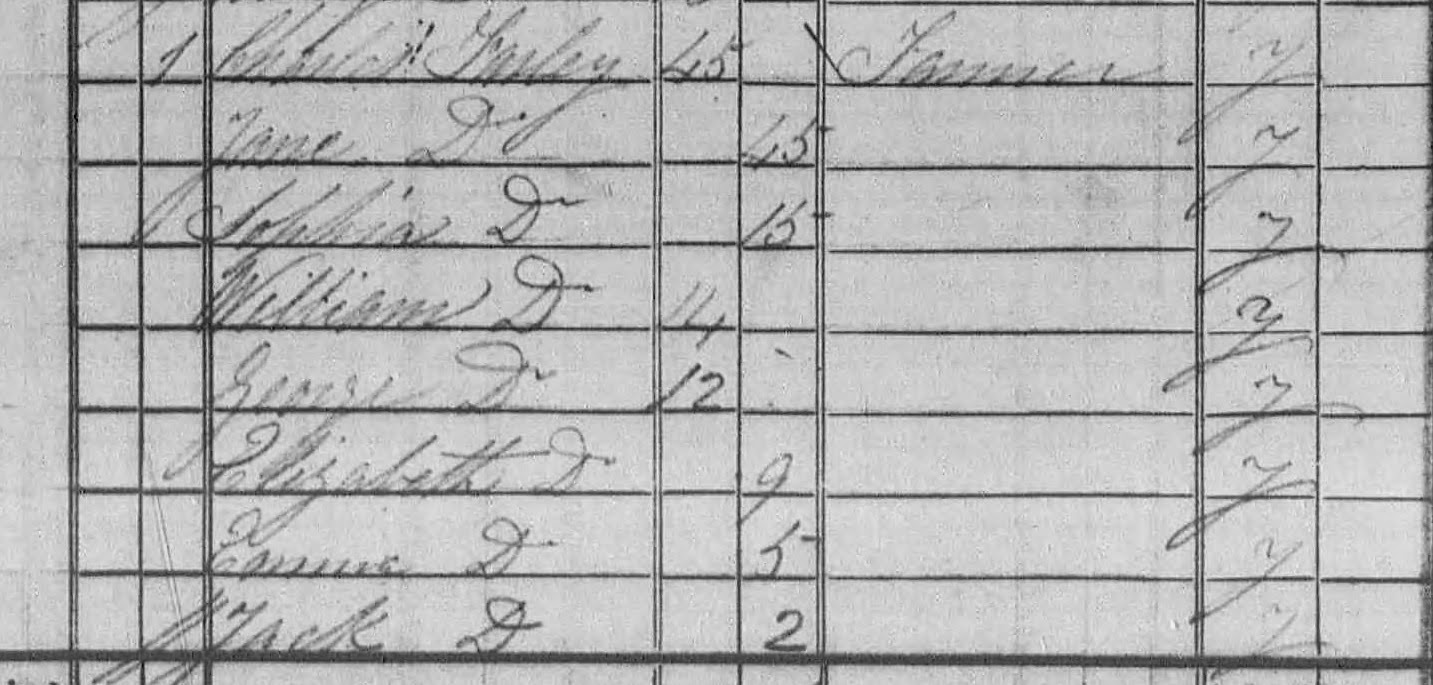 1 Farley 45 Farmer y
Jane Do 45 y
Sophia Do 15 y
William Do 14 y
George Do 12 y
Elizabeth Do 9 y
Emma Do 5 y
Jack Do 2 y